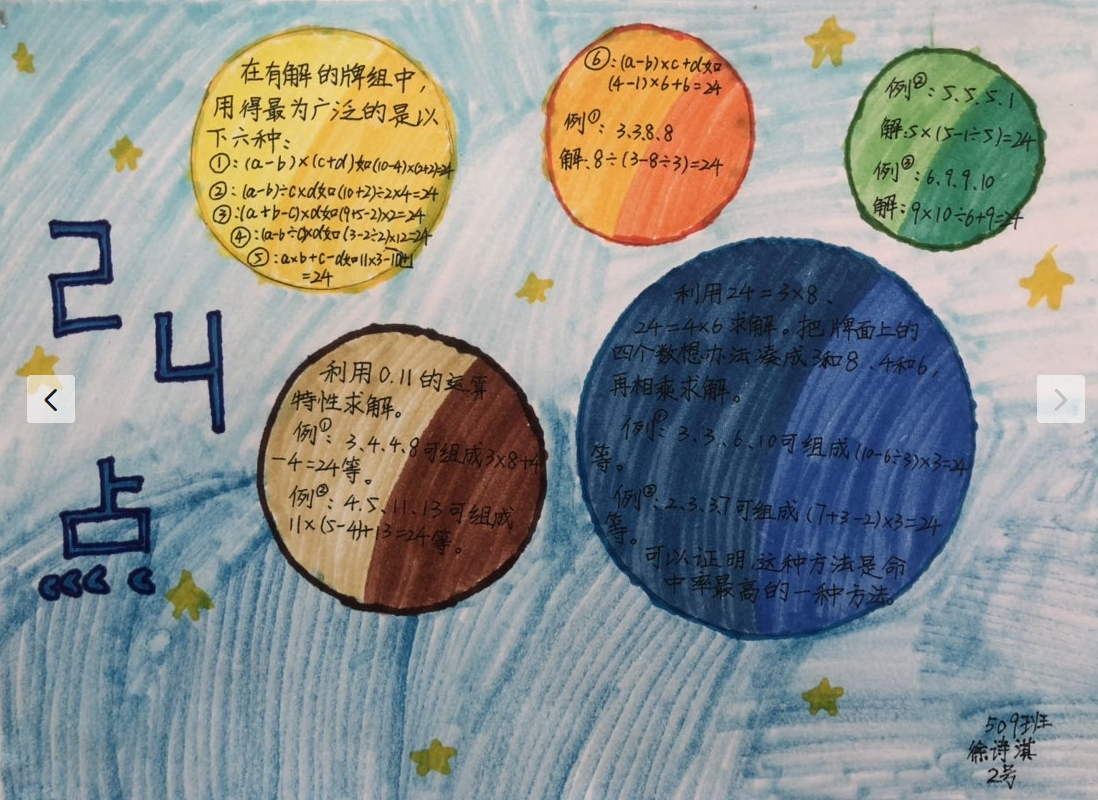 24点
在有解的牌组中，
用得最为广泛的是以
下六种：
①：(a-b)×(c+d)如(10-4)×(2+2)=24
②：(a-b)÷c×d如(10+2)÷2×4=24
③：(a+b-c)×d如(9+5-2)×2=24
④：(a-b÷c)×d如(3-2÷2)×12=24
⑤：a×b+c-d如11×3-10+1
=24
⑥：(a-b)×c+d如
(4-1)×6+6=24
例①：3.3.8.8
解：8÷(3-8÷3)=24
例②：5.5.5.1
解：5×(5-1÷5)=24
例③：6.9.9.10
解：9×10÷6+9=24
利用0.11的运算
特性求解。
例①：3.4.4.8可组成3×8+4
-4=24等。
例②：4.5.11.13可组成
11×(5-4)+13=24等。
利用24=3×8、
24=4×6求解。把牌面上的
四个数想办法凑成3和8、4和6，
再相乘求解。
例①：3.3.6.10可组成(10-6÷3)×3=24
等。
例②：2.3.3.7可组成(7+3-2)×3=24
等。
可以证明，这种方法是命
中率最高的一种方法。
509班
徐诗淇
2号